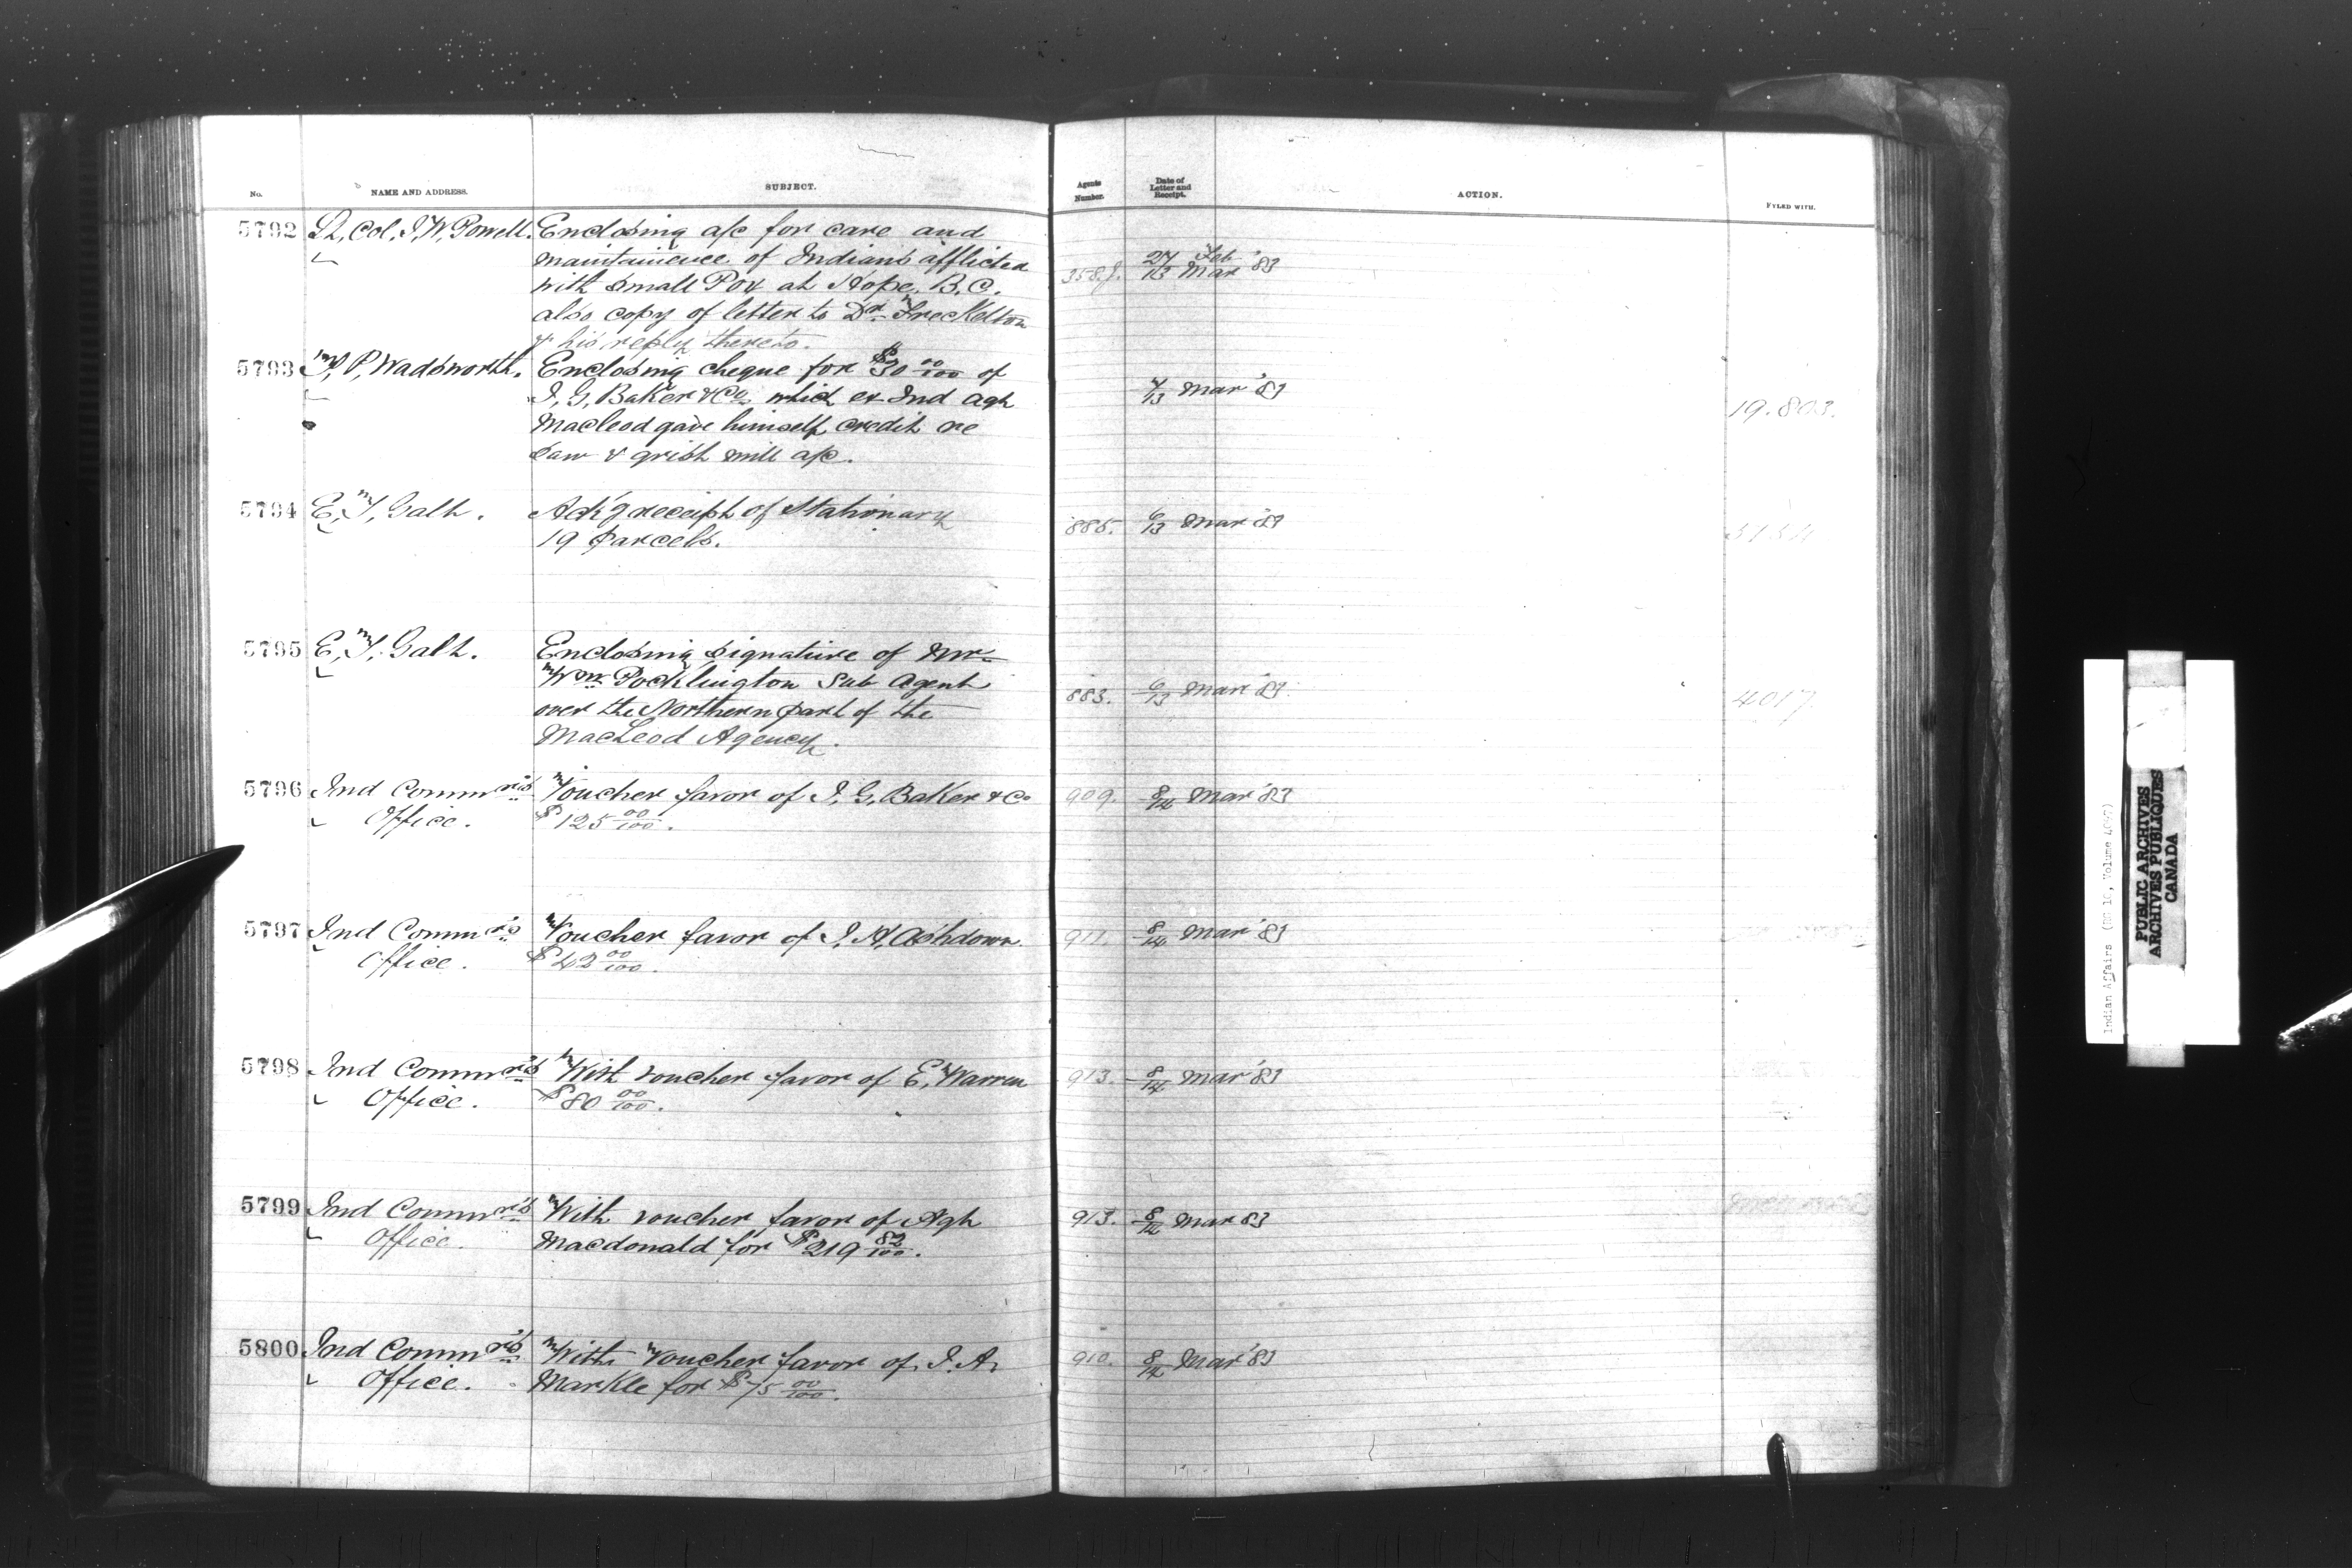 No.
NAME AND ADDRESS.
SUBJECT.
Agents Number.
Date of Letter and Receipt.
ACTION.
FYLED WITH.
5792 Lt, Col, I, W, Powell. Enclosing a/c for care and
maintainence of Indians afflicted
with small Pox at Hope, B.C.
also copy of letter to Dr. Freckelton
& his reply thereto.
358.J. 27/13 Feb Mar '83
5793 T, P, Wadsworth. Enclosing cheque for $30 00/100 of
I, G, Baker & Co. which ex Ind Agt
Macleod gave himself credit re
saw & grist mill a/c.
4/13 Mar '83
19.803.
5794 E, T, Galt. Ack'g receipt of Stationary
19 parcels.
885. 6/13 Mar '83
5795 E, T, Galt. Enclosing signature of Mr.
Wm Pocklington Sub Agent
over the Northern part of the
MacLeod Agency.
883. 6/13 Mar '83
4017.
5796 Ind Commr's Voucher favor of I, G, Baker & Co
Office. $125 00/100.
909. 8/14 Mar '83
5797 Ind Commr's Voucher favor of J, H, Ashdown.
Office. $42 00/100.
911. 8/14 Mar '83
5798 Ind Commr's With voucher favor of E, Warren
Office. $80 00/100.
913. 8/14 Mar '83
5799 Ind Commr's With voucher favor of Agt
Office. Macdonald for $219 82/100.
913. 8/14 Mar 83
5800 Ind Commr's With voucher favor of J. A.
Office. Markle for $75 00/100.
910. 8/14 Mar '83
Indian Affairs (RG 10, Volume
PUBLIC ARCHIVES
ARCHIVES PUBLIQUES
CANADA